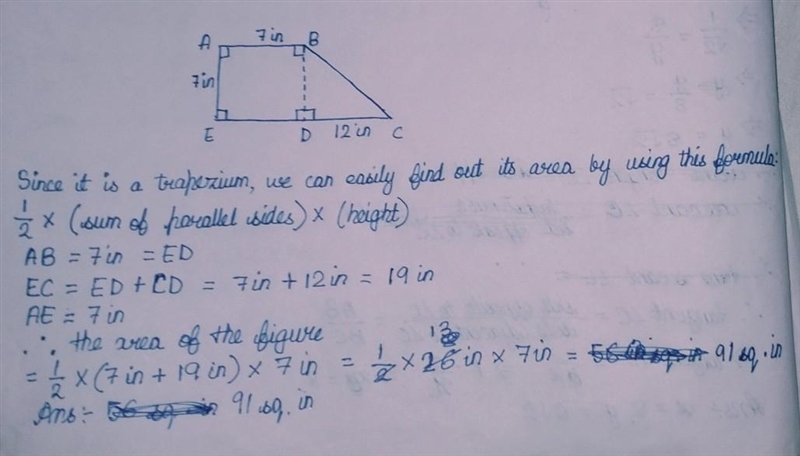 7in
A B
7in
E D 12in C
Since it is a trapezium, we can easily find out its area by using this formula:
1/2 × (sum of parallel sides) × (height)
AB = 7in = ED
EC = ED + CD = 7in + 12in = 19 in
AE = 7in
∴ the area of the figure
= 1/2 × (7in + 19in) × 7in = 1/2 × 26 13 in × 7in = 91 sq. in
Ans:- 91 sq. in